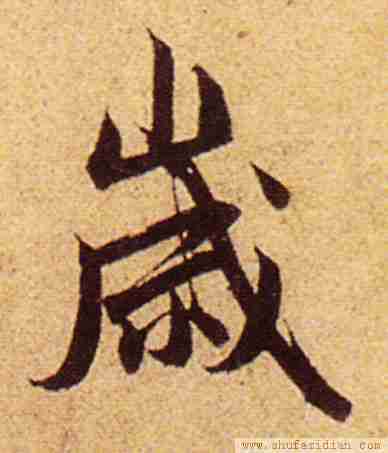 歲
www.shufazidian.com